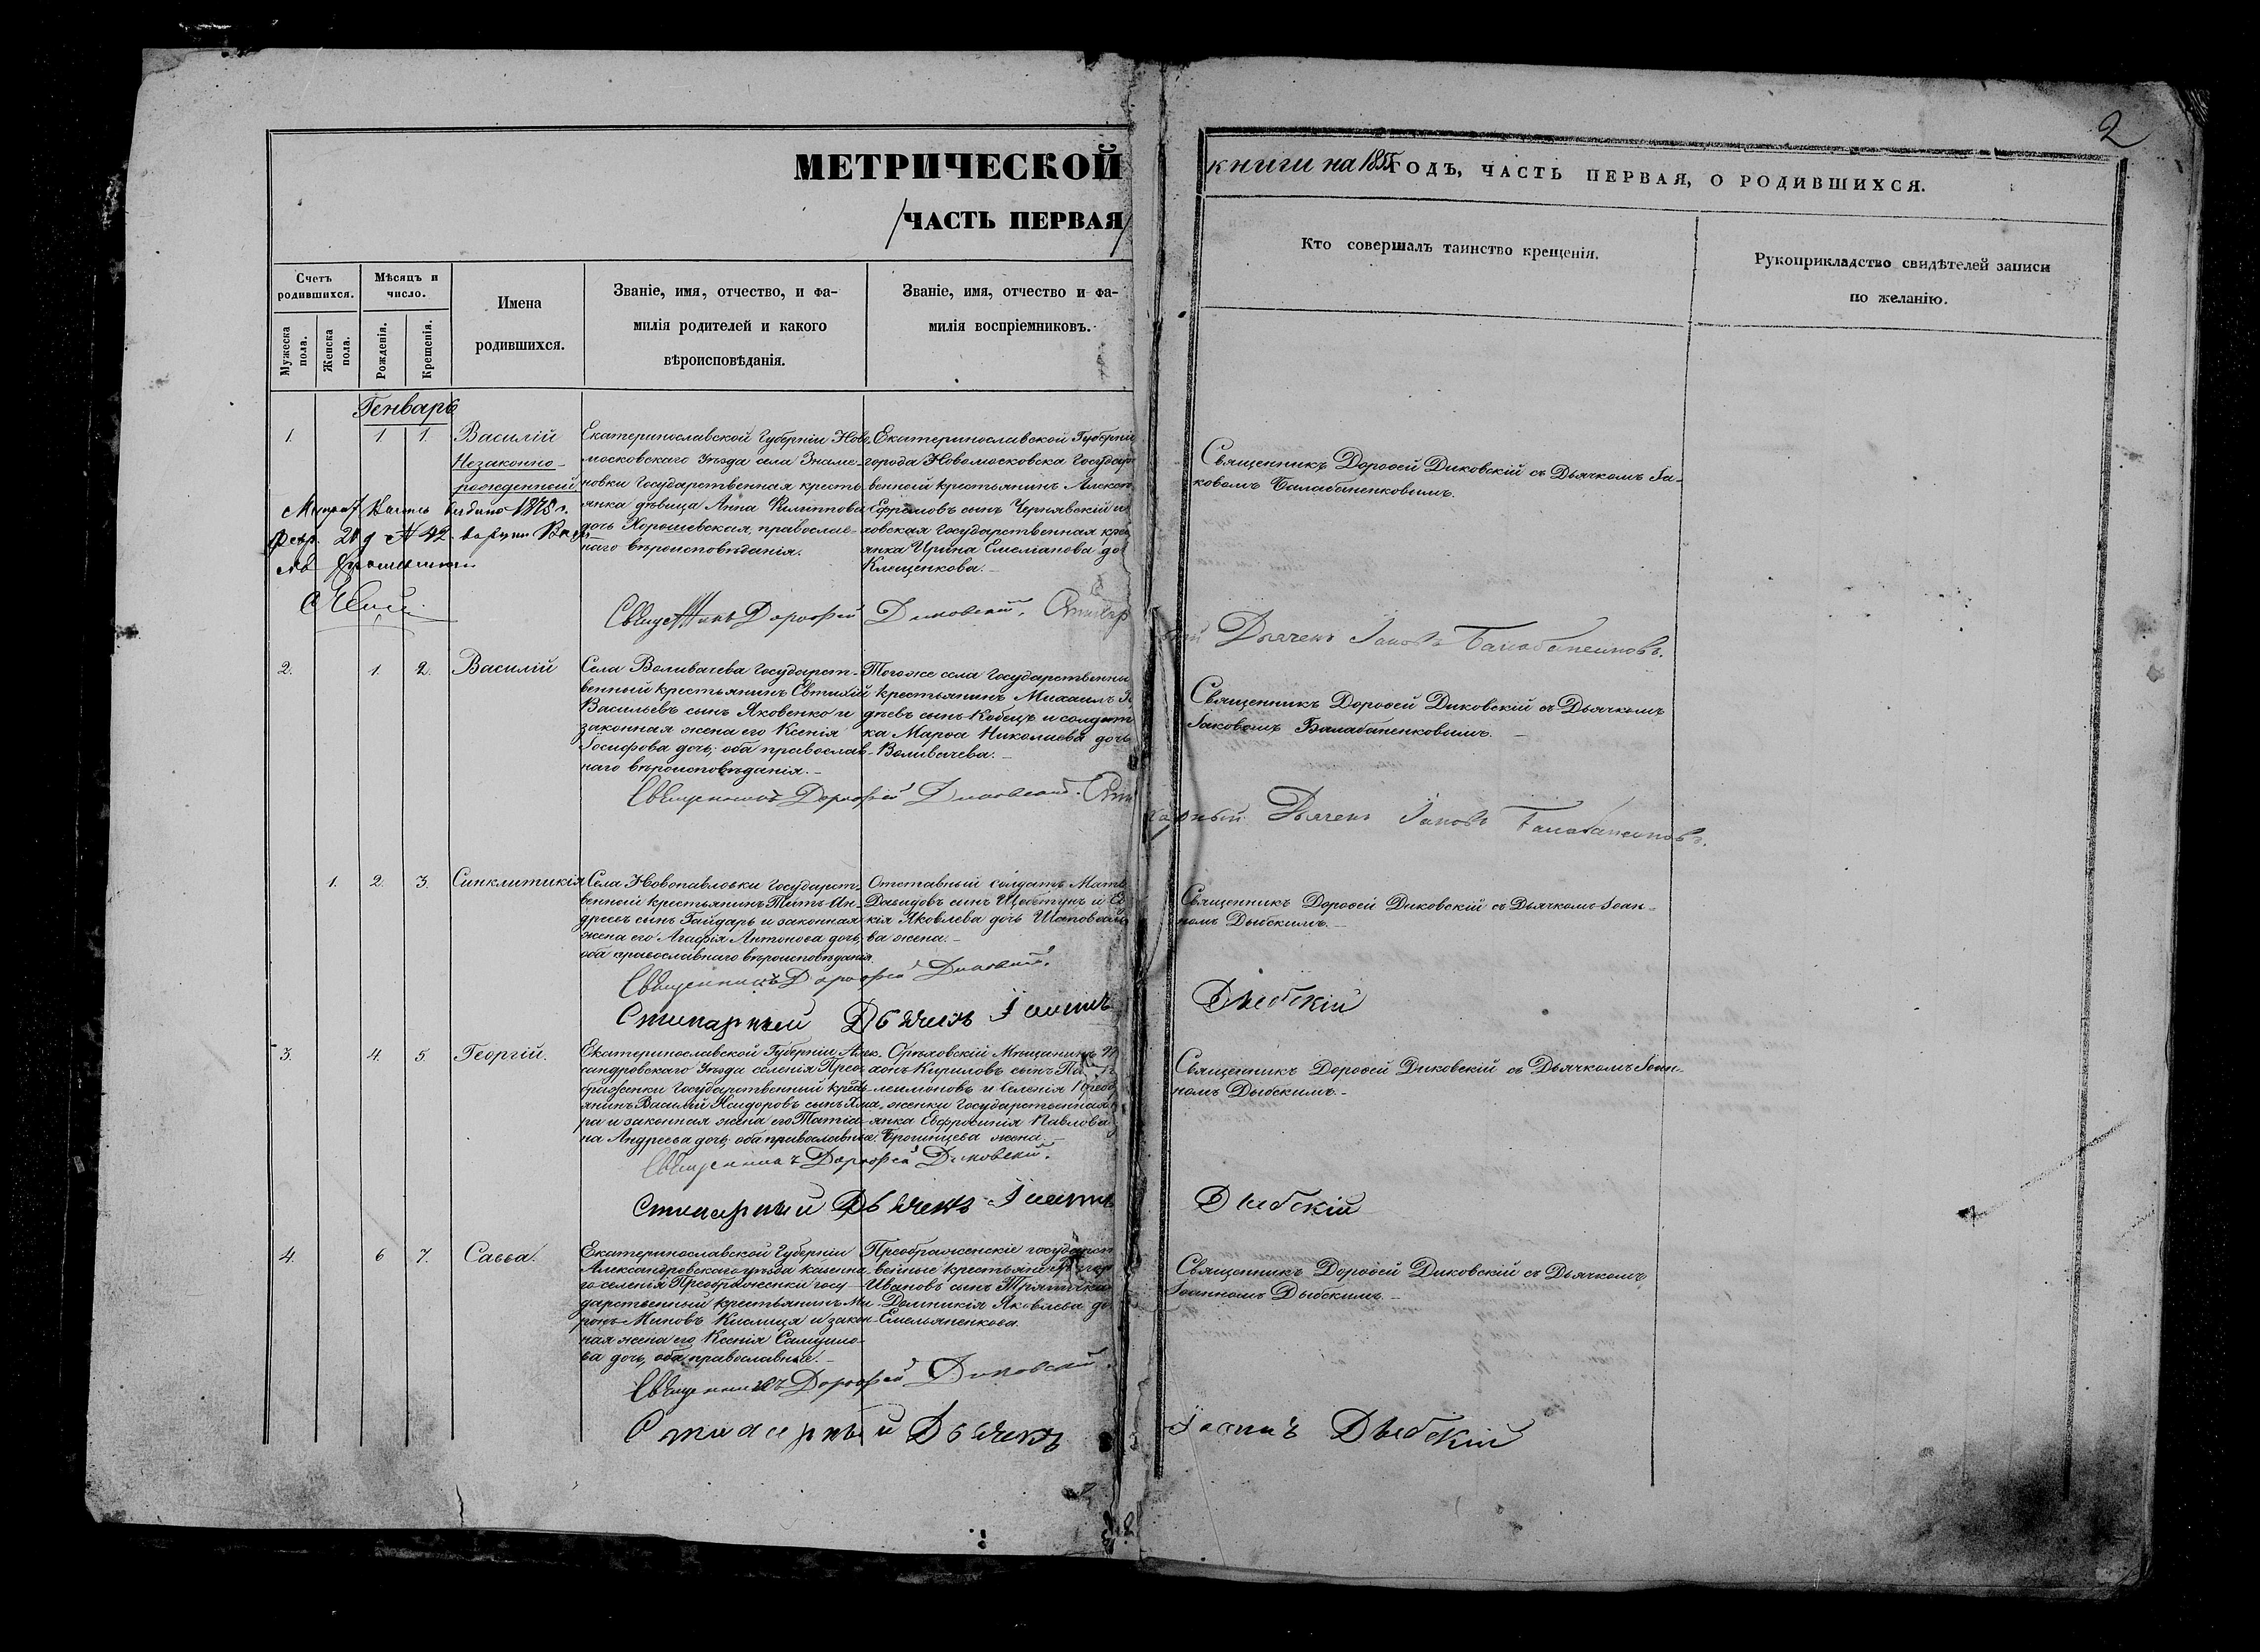 2
МЕТРИЧЕСКОЙ
/ЧАСТЬ ПЕРВАЯ/
книги на 1855 ГОДЪ, ЧАСТЬ ПЕРВАЯ, О РОДИВШИХСЯ.
Счетъ родившихся.
Мужеска пола.
Женска пола.
Мѣсяцъ и число.
Рожденія.
Крещенія.
Имена
родившихся.
Званіе, имя, отчество, и фа-
милія родителей и какого
вѣроисповѣданія.
Званіе, имя, отчество и фа-
милія воспріемниковъ.
Кто совершалъ таинство крещенія.
Рукоприкладство свидѣтелей записи
по желанію.
Генварь
1. 1 1 Василій
Незаконно-
рожденный
1878 г.
№ 42
Екатеринославской Губерніи Ново-
московскаго Уѣзда села Знаме-
новки Государственная кресть-
янка дѣвица Анна Филиппова
дочь Хорошевская, православ-
наго вѣроисповѣданія.
Екатеринославской Губерніи
города Новомосковска Государ
венный крестьянинъ
Ефремовъ сынъ Чернявскій и
ховская Государственная
янка Ирина Емеліанова до
Клещенкова.
Священникъ Дороѳей Диковскій съ Дьячкомъ Іа-
ковомъ Балабаненковымъ.
Священникъ Дорофей Диковскій.
Дьячекъ Іаковъ Балабаненковъ.
2. 1. 2. Василій
Села Воливачева Государст-
венный крестьянинъ Евтихій
Васильевъ сынъ Яковенко и
законная жена его Ксенія
Іосифова дочь, оба православ-
наго вѣроисповѣданія.
Тогоже села Государственны
крестьянинъ Михаилъ
дѣевъ сынъ Кобецъ и солдат
ка Марѳа Николаева дочь
Воливачева.
Священникъ Дороѳей Диковскій съ Дьячкомъ
Іаковомъ Балабаненковымъ.
Священникъ Дорофей Диковскій.
Дьячекъ Іаковъ Балабаненковъ.
1. 2. 3. Синклитикія
Села Новопавловки Государст-
венный крестьянинъ Титъ Ан-
дреевъ сынъ Гайдарь и законная
жена его Агафія Антонова дочь,
оба православнаго вѣроисповѣданія.
Отставный солдатъ
Давидовъ сынъ и
кія Яковлева дочь Шаповало
ва жена.
Священникъ Дороѳей Диковскій съ Дьячкомъ Іоан-
номъ Дыбскимъ.
Священникъ Дорофей Диковскій.
Стихарный Дьячекъ Іоаннъ Дыбскій
3. 4. 5. Георгій.
Екатеринославской Губерніи Алек-
сандровскаго Уѣзда селенія Прео-
браженки Государственный кресть-
янинъ Василій Исидоровъ сынъ
и законная жена его Татіа-
на Андреева дочь, оба православные.
Орѣховскій Мѣщанинъ
Кириловъ сынъ
и селенія Преоб
женки Государственная
янка Евфросинія Павлова
жена.
Священникъ Дороѳей Диковскій съ Дьячкомъ Іоан-
номъ Дыбскимъ.
Священникъ Дорофей Диковскій.
Стихарный Дьячекъ Іоаннъ Дыбскій
4. 6 7. Савва.
Екатеринославской Губерніи
Александровскаго уѣзда казенна-
го селенія Преображенки госу-
дарственный крестьянинъ Ми-
ронъ Миновъ Кислица и закон-
ная жена его Ксенія Самуило-
ва дочь, оба православные.
Преображенскіе государст
венные крестьяне
Ивановъ сынъ
Домникія Яковлева до
Емельяненкова.
Священникъ Дороѳей Диковскій съ Дьячкомъ
Іоанномъ Дыбскимъ.
Священникъ Дорофей Диковскій.
Стихарный Дьячекъ Іоаннъ Дыбскій